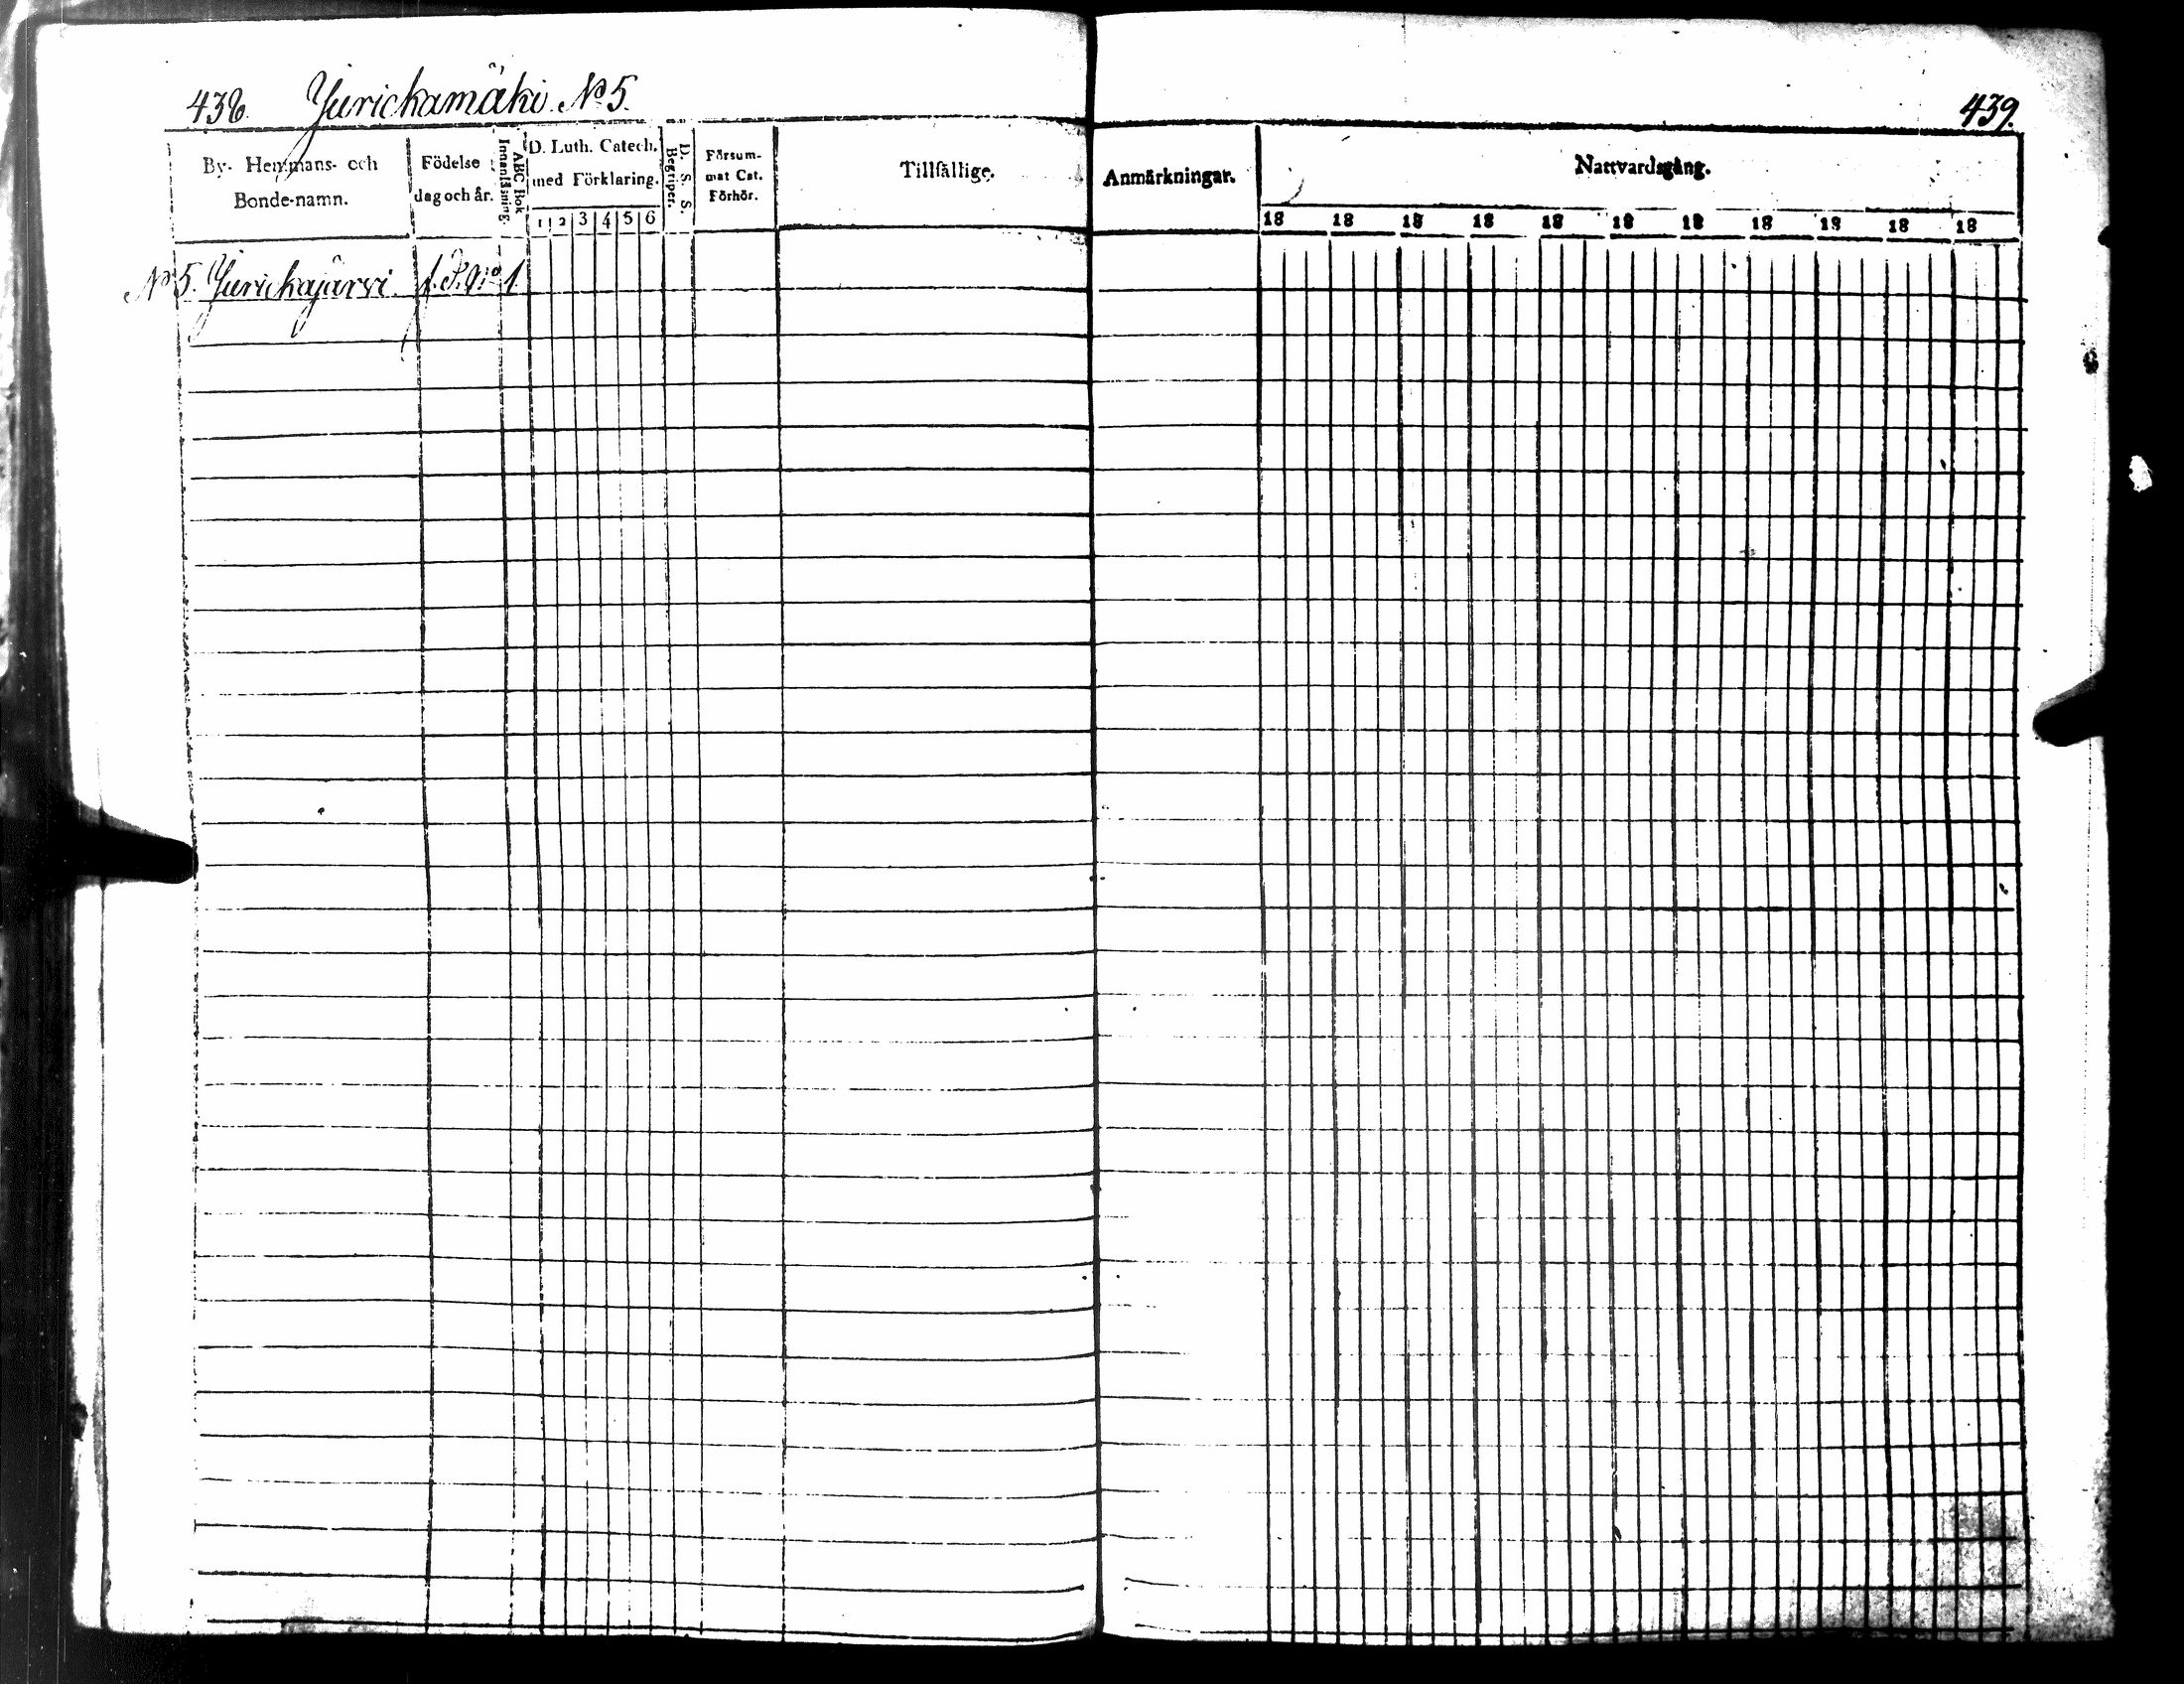 438. Jurickamäki № 5.
439.
By- Hemmans- och
Bonde-namn.
Födelse
dag och år.
ABC Bok
Innanläsning.
D. Luth. Catech.
med Förklaring.
1 2 3 4 5 6
D. S. S.
Begriper.
Försum-
mat Cat.
Förhör.
Tillfällige.
Anmärkningar.
Nattvardsgång.
18 18 18 18 18 18 18 18 18 18 18
№ 5. Jurickajärvi